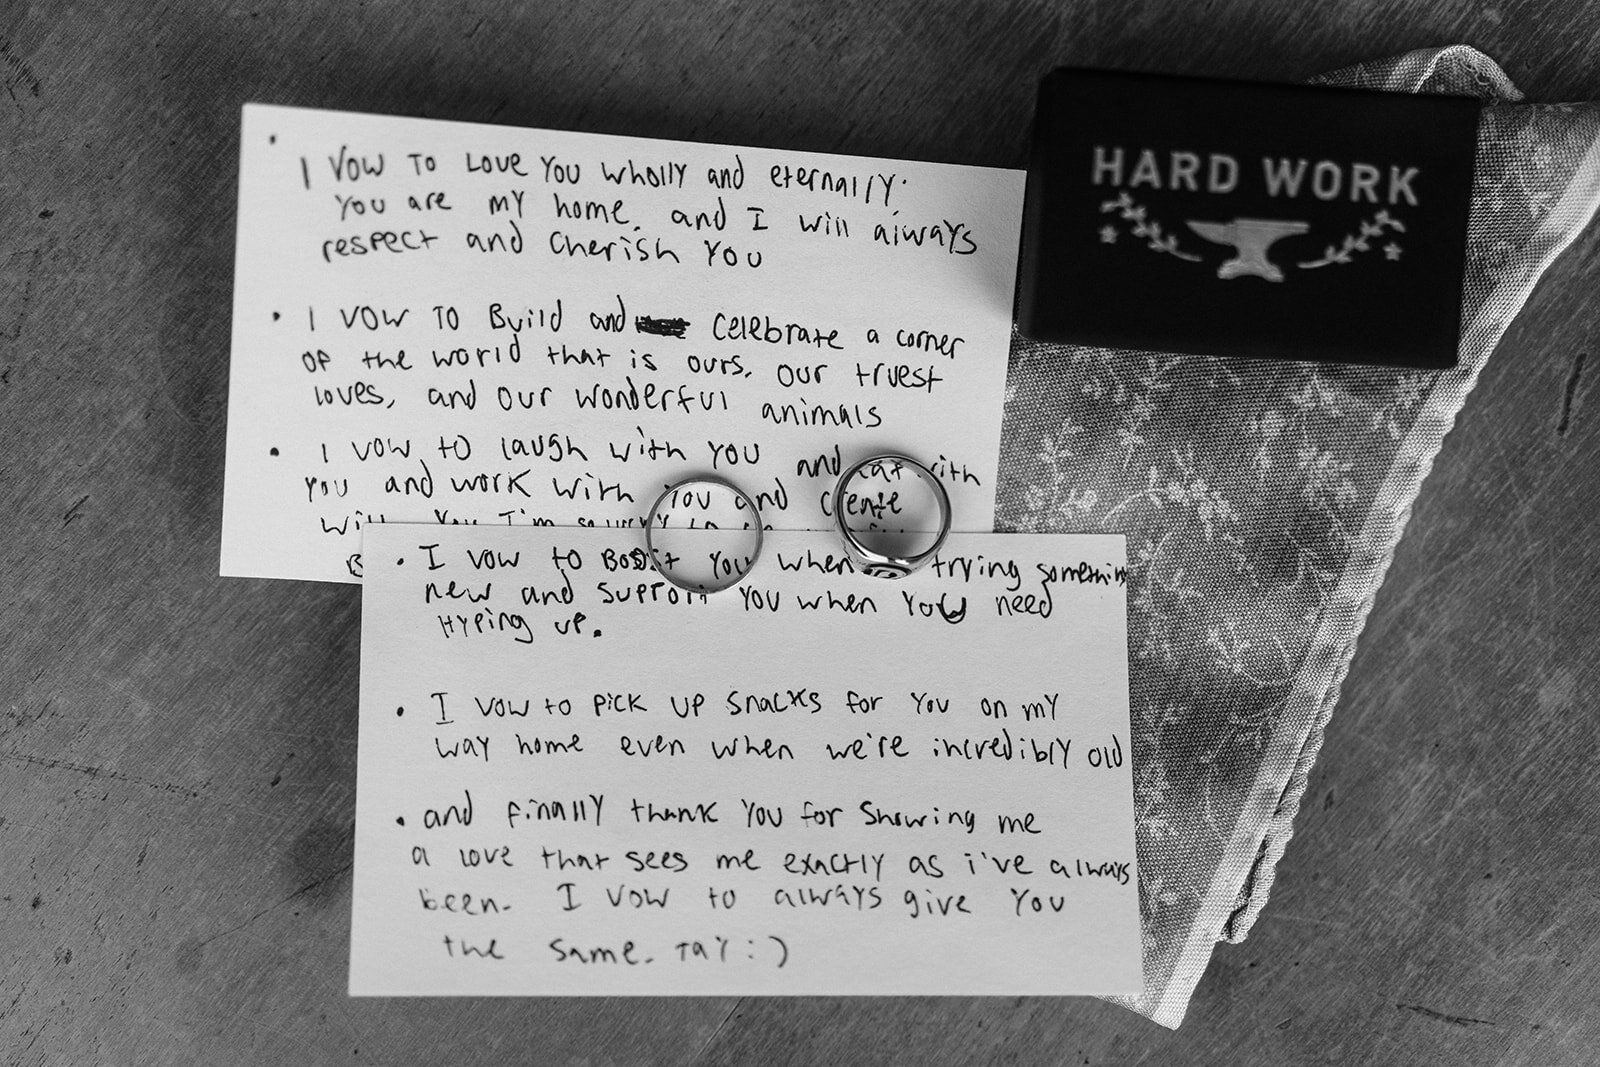 • I vow to Love You wholly and eternally.
You are my home. and I will always
respect and cherish You
• I vow to Build and celebrate a corner
of the world that is ours, our truest
loves, and our wonderful animals
• I vow to laugh with you and eat with
You and work with You and create
with You I'm so
• I vow to Boost You when trying something
new and support You when You need
Hyping up.
• I vow to Pick up snacks for You on my
way home even when we're incredibly old
• and finally thank You for showing me
a love that sees me exactly as i've always
been. I vow to always give You
the same. Tay :)
HARD WORK